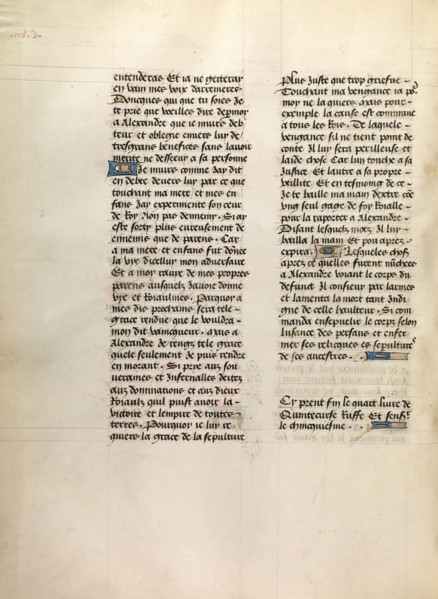 entenderas Et ia ne getteray
en vain mes voix darrenieres
Doncques qui que tu soies Je
te prie que veilles dire de par moy
a Alexandre que ie muirs deb
teur et oblegie enuers luy de
tresgrans benefices sans lauoir
merite ne desseruy a sa personne
Je muirs comme Jay dit
en debte deuers luy par ce que
touchant ma mere et mes en
fans Jay experimente son cueur
de Roy Non pas dennemy. Si ay
este sorty plus eureusement de
ennemie que de parens. Car
a ma mere et enfans fut donee
la vye dicelluy mon aduersaire
Et a moy rauie de mes propres
parens ausquelz Jauoie donne
vye et Roiaulmes. Parquoy a
mes dis prochains sera tele
grace rendue que le vouldra
mon dit vainqueur. Mais a
Alexandre Je rengz tele grace
quele seulement Je puis rendre
en morant. Si prie aux sou
uerains et Infernalles deitez
aux dominations et aux dieux
Roiaulx quil puist auoir la
victoire et lempire de toutes
terres. Pourquoy ie luy re
quiers la grace de la sepulture
plus Juste que trop griefue
Touchant ma vengance ia po
moy ne la quiere. Mais pour
exemple la cause est commune
a tous les Rois. De laquele
vengance sil ne tient point de
conte Il luy sera perilleuse et
laide chose. Car lun touche a sa
Justice. Et lautre a sa propre
vtillite. Et en tesmoing de ce
Je te baille ma main dextre coe
vng seul gaige de foy Roialle
pour la raporter a Alexandre
Disant lesquelz motz. Il luy
bailla la main Et pou apres
expira. Lesqueles choses
apres ce quelles furent nuchees
a Alexandre voiant le corps du
deffunt Il confiera par larmes
et lamenta la mort tant Indi
gne de celle haulteur. Si com
manda ensepuelir le corps selon
lusance des persans et enfer
mer ses relicques es sepultures
de ses ancestres.
Cy prent fin le quart liure de
Quintecurse Ruffe Et sensuit
le chincquiesme.